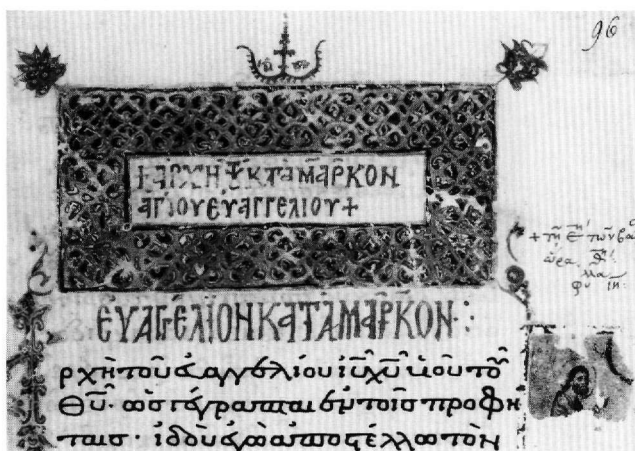 96
+ ΑΡΧΗ ΚΑΤΑ ΜΑΡΚΟΝ
ΑΓΙΟΥ ΕΥΑΓΓΕΛΙΟΥ +
ΕΥΑΓΓΕΛΙΟΝ ΚΑΤΑ ΜΑΡΚΟΝ·:
ρχὴ τοῦ εὐαγγελίου ιῡ χῡ υἱοῦ τοῦ
θῡ· ὡς γέγραπται ἐν τοῖς προφή
ταις· ἰδοὺ ἐγὼ ἀποστέλλω τὸν